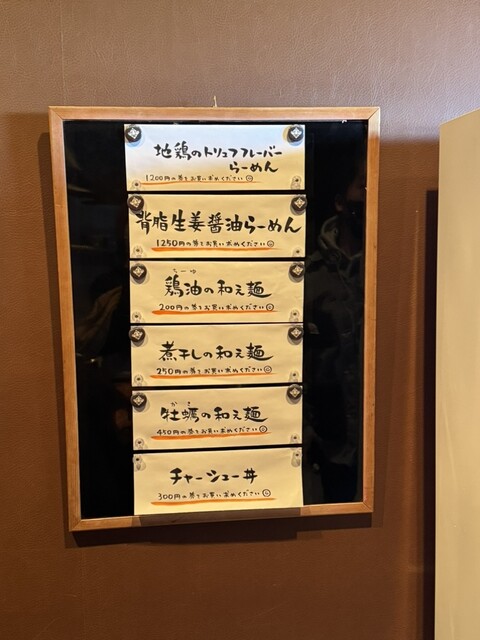 地鶏のトリュフフレーバー
らーめん
1200円の券をお買い求めください☺
背脂生姜醤油らーめん
1250円の券をお買い求めください☺
ちーゆ
鶏油の和え麺
200円の券をお買い求めください☺
煮干しの和え麺
250円の券をお買い求めください☺
かき
牡蠣の和え麺
450円の券をお買い求めください☺
チャーシュー丼
300円の券をお買い求めください☺